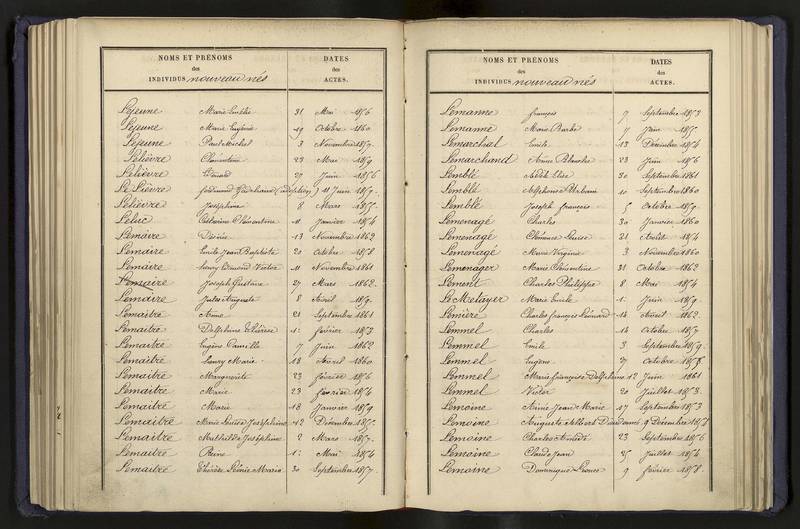 NOMS ET PRÉNOMS
des
INDIVIDUS nouveau nés
DATES
des
ACTES.
Lejeune Marie Emélie 31 Mai 1856
Lejeune Marie Eugénie 29 Octobre 1860
Lejeune Paul Michel 3 Novembre 1859
Lelièvre Clémentine 23 Mai 1859
Lelièvre 27 Juin 1856
Le Lièvre ferdinand (adoption) 11 Juin 185
Lelièvre Joséphine 8 Mars 185
Leluc Catherine Clémentine 11 Janvier 1854
Lemaire Désirée 13 Novembre 1862
Lemaire Emile Jean Baptiste 20 Octobre 1858
Lemaire henry Edmond Victor 11 Novembre 1861
Lemaire Joseph Gustave 27 Mars 1862
Lemaire Jules Auguste 8 Avril 1859
Lemaitre Aimé 21 Septembre 1861
Lemaitre Delphine Thérèse 1: février 1853
Lemaitre Eugène Camille 7 Juin 1862
Lemaitre henry Marie 18 Avril 1860
Lemaitre Marguerite 23 février 1856
Lemaitre Marie 23 février 1854
Lemaitre Marie 18 Janvier 1859
Lemaitre Marie Louise Joséphine 12 Décembre 185
Lemaitre Mathilde Joséphine 2 Mars 1857
Lemaitre Reine 1: Mai 1854
Lemaitre Thérèse Léonie Maria 30 Septembre 1857
NOMS ET PRÉNOMS
des
INDIVIDUS nouveau nés
DATES
des
ACTES.
Lemanne françois 7 Septembre 1853
Lemanne Marie Barbe 7 Juin 185
Lemarchal Emile 13 Décembre 1854
Lemarchand Anne Blanche 23 Juin 1856
Lemblé Elise 30 Septembre 1861
Lemblé Alphonse Urbain 10 Septembre 1860
Lemblé Joseph françois 5 Octobre 1859
Lemenagé Charles 30 Janvier 1860
Lemenagé Clémence Louise 21 Août 1854
Lemenagé Marie Virginie 3 Novembre 1860
Lemenager Marie Clémentine 31 Octobre 1862
Lement Charles Philippe 8 Mai 1854
Le Metayer Marie Emile 1: Juin 1859
Lemière Charles françois Léonard 14 Août 1862
Lemmel Charles 14 Octobre 1857
Lemmel Emile 3 Septembre 1859
Lemmel Eugène 27 Octobre 1858
Lemmel Marie françoise Delphine 12 Juin 1861
Lemmel Victor 20 Juillet 1853
Lemoine Aimée Jean Marie 17 Septembre 1853
Lemoine Auguste Albert Dieudonné 9 Décembre 1858
Lemoine Charles Amédé 23 Septembre 1856
Lemoine Claude Jean 25 Juillet 1854
Lemoine Dominique 9 février 1858